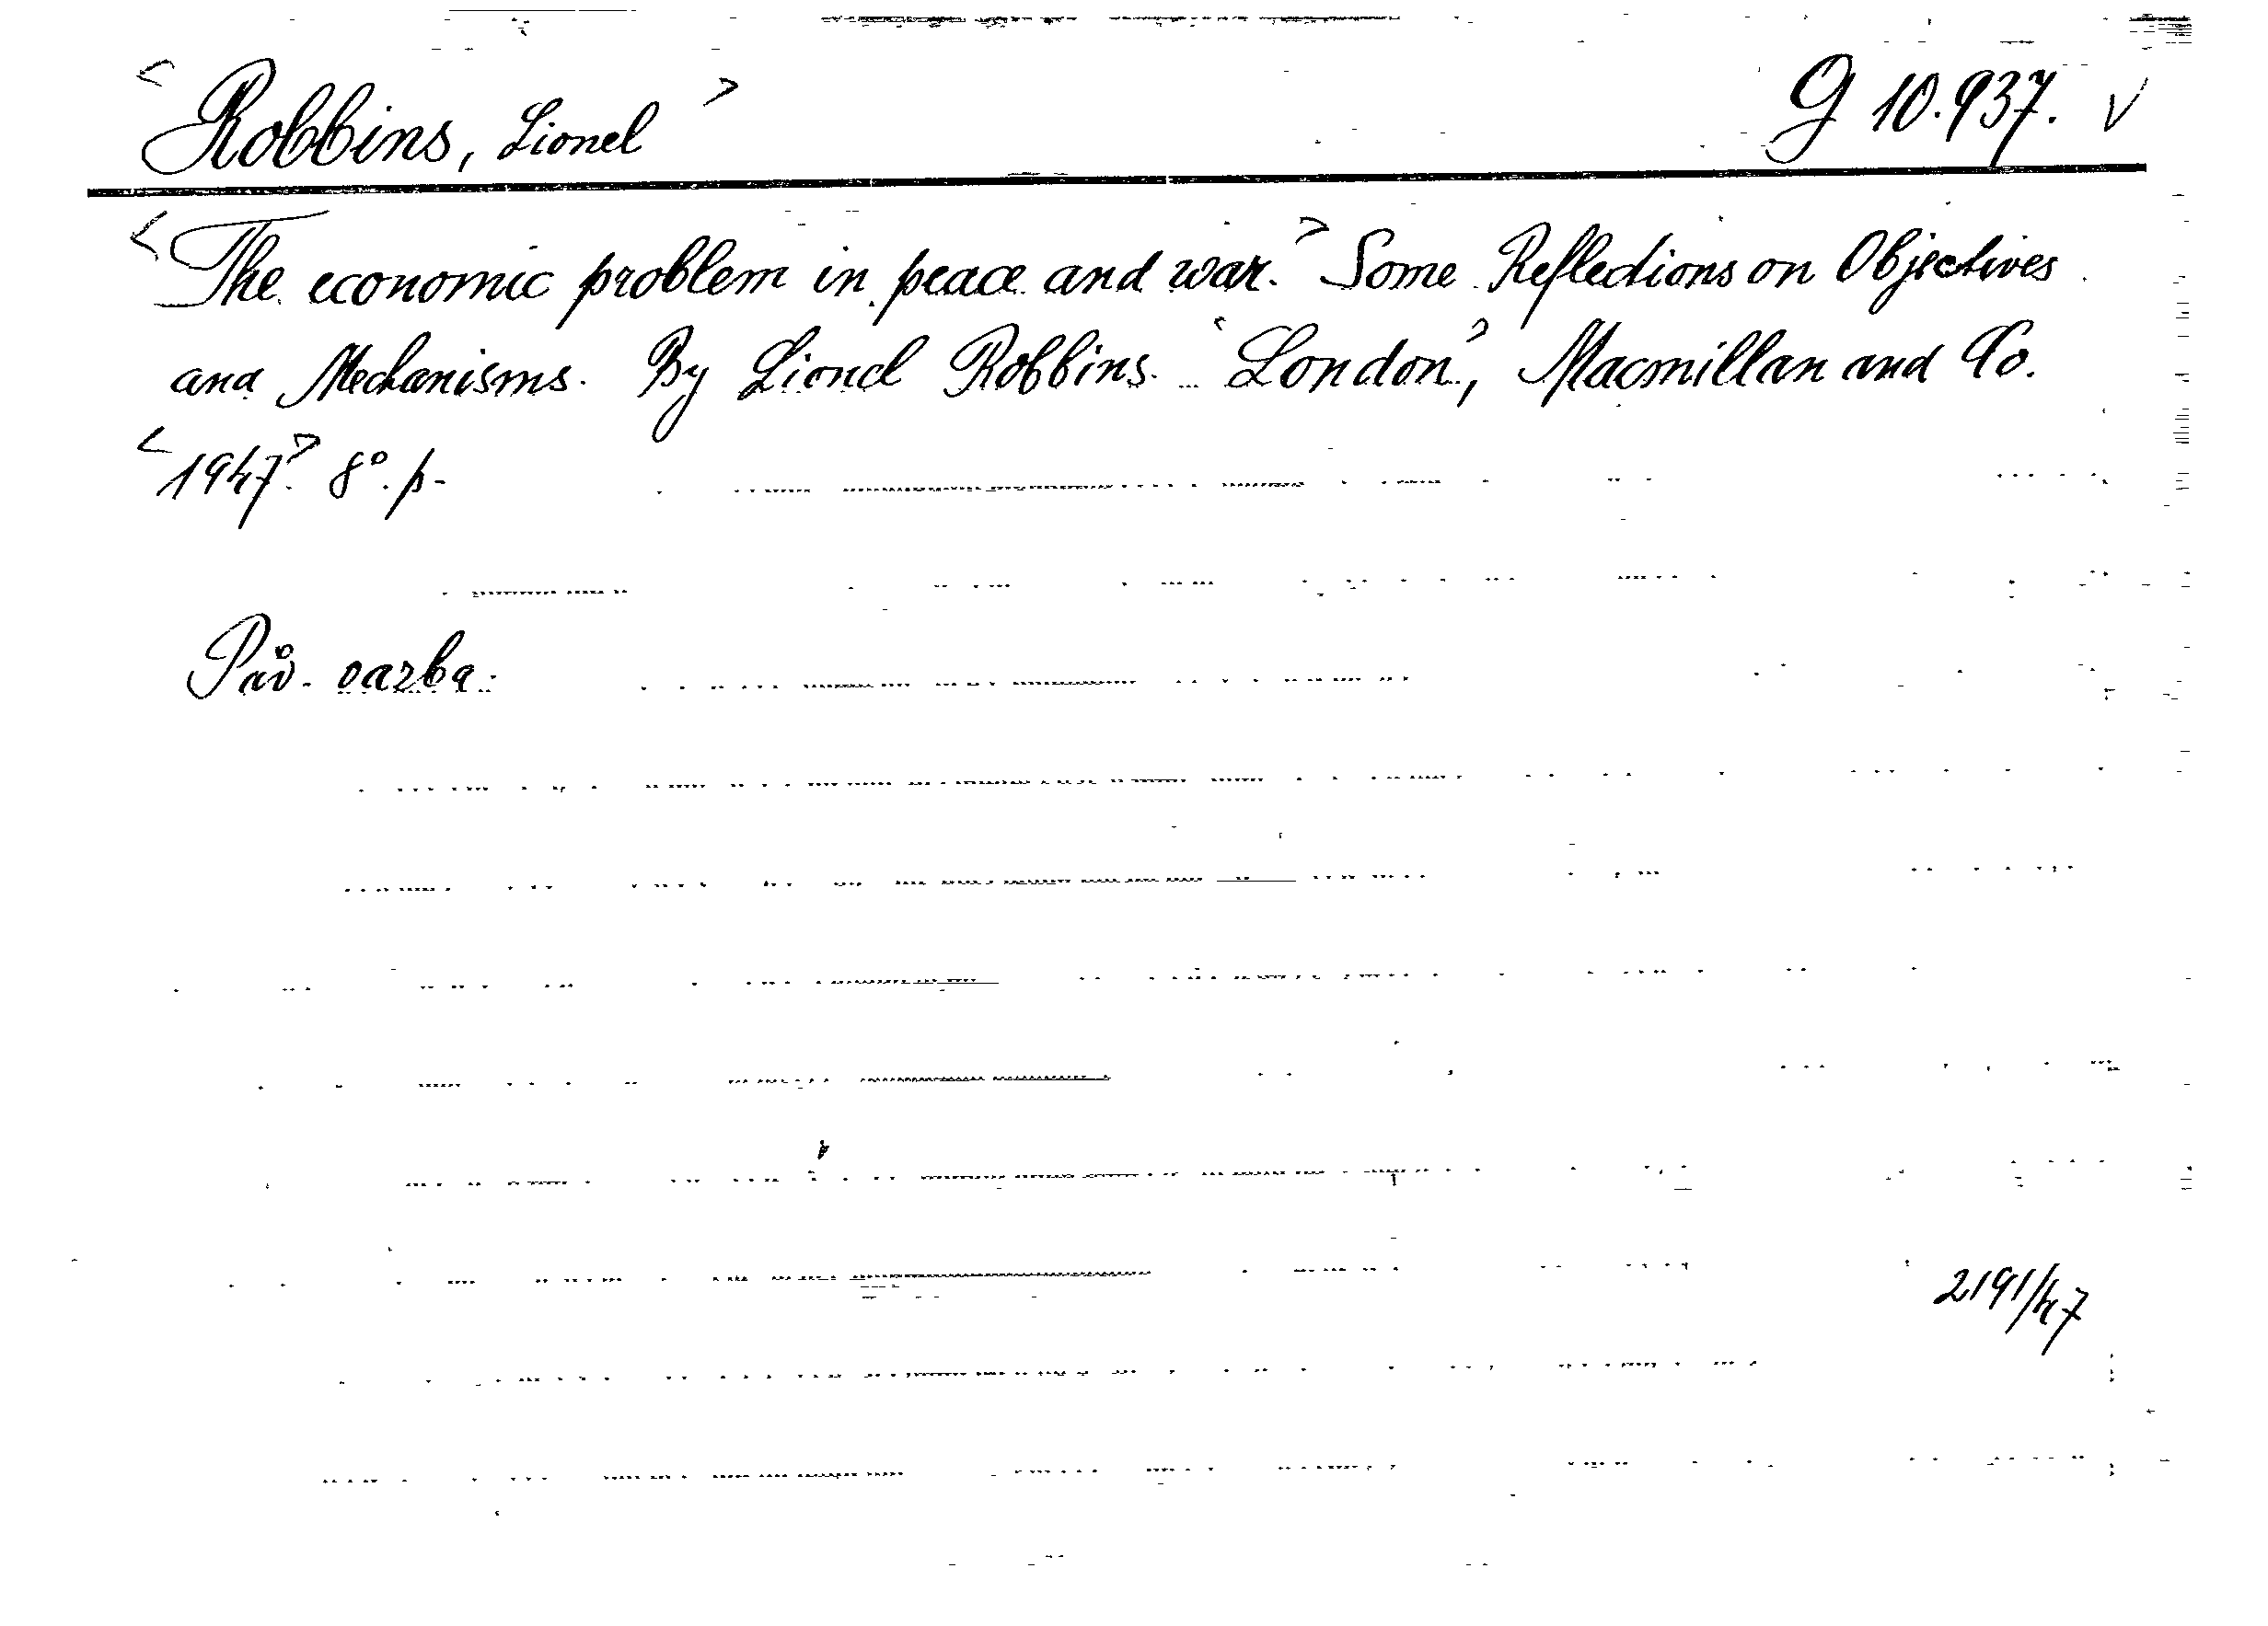 <Robbins, Lionel> G 10.937. V
<The economic problem in peace and war.> Some Reflections on Objectives
and Mechanisms. By Lionel Robbins. <London>, Macmillan and Co.
<1947>. 8°. p.
Pův. vazba.
2191/47